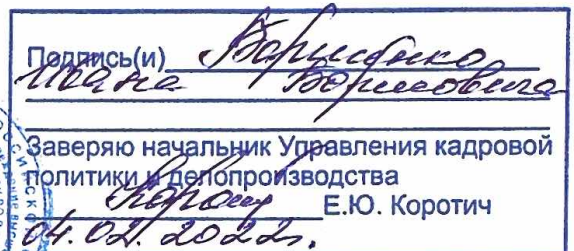 Подпись(и) Борисенко
Ивана Борисовича
Заверяю начальник Управления кадровой
политики и делопроизводства
Е.Ю. Коротич
04.02.2022г.